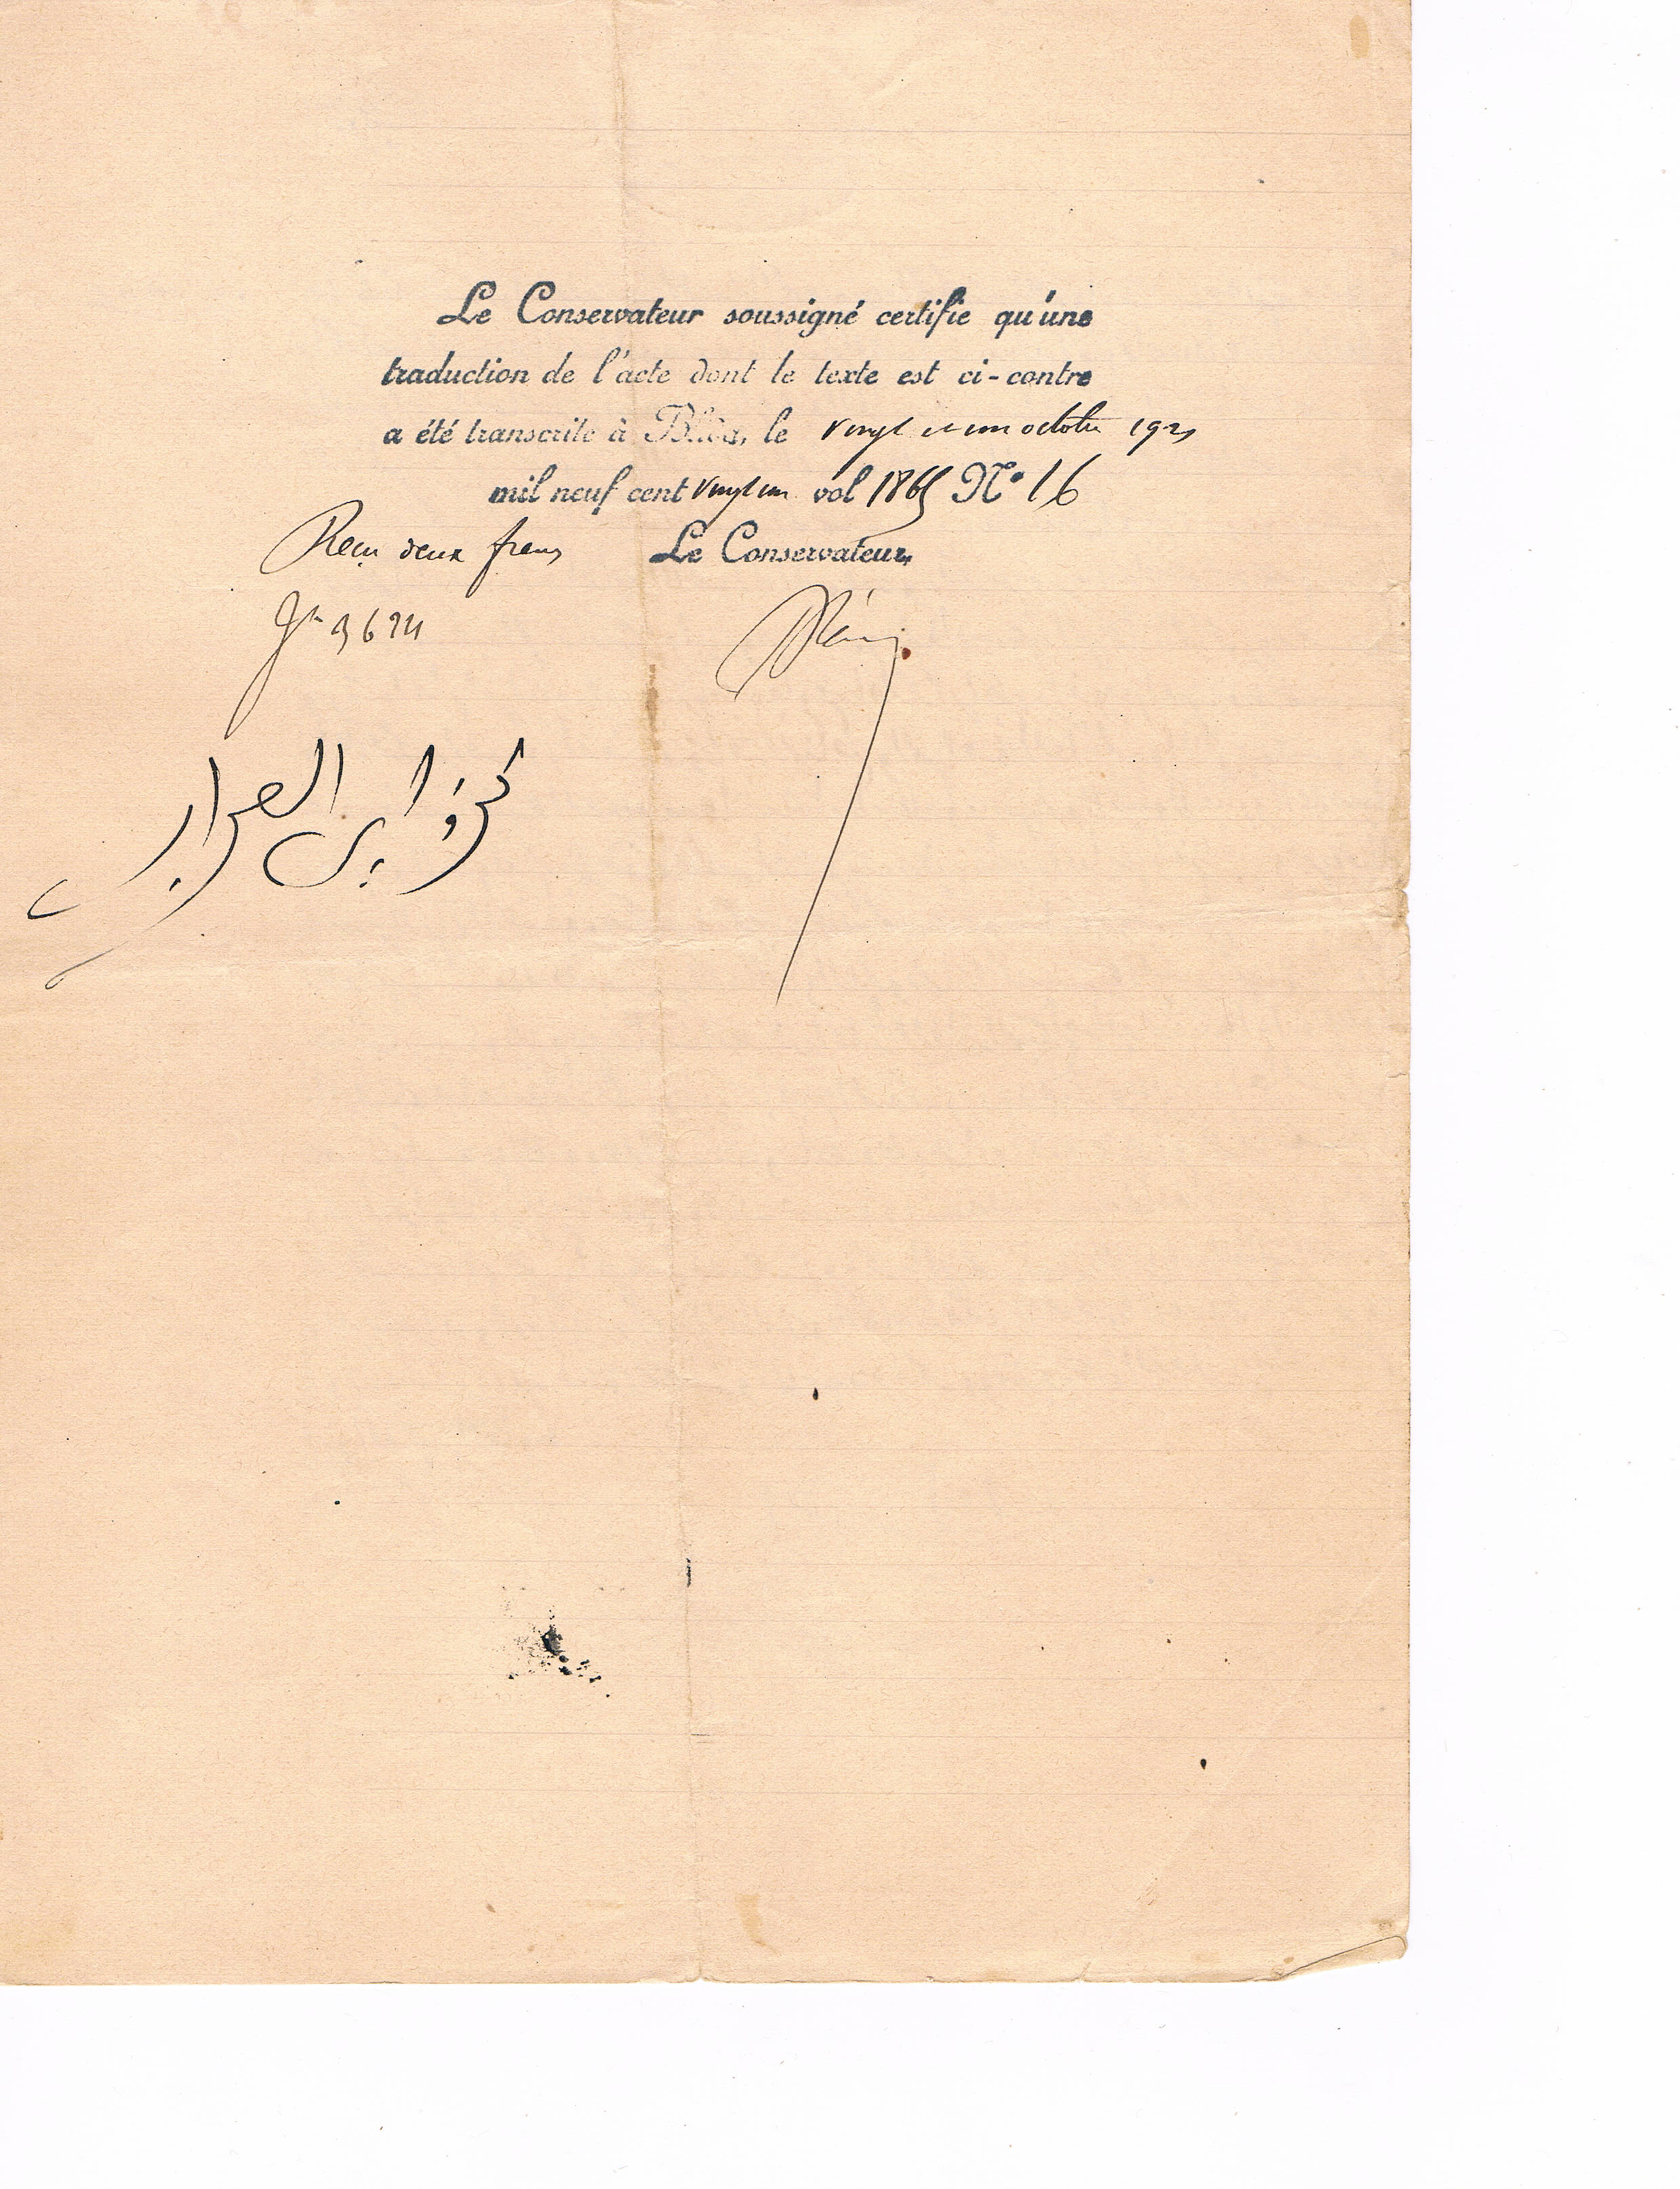 Le Conservateur soussigné certifie qu'une
traduction de l'acte dont le texte est ci-contre
a été transcrite à Blida, le vingt et un octobre 1921
mil neuf cent vingt un vol 1865 N° 16
Reçu deux francs Le Conservateur,